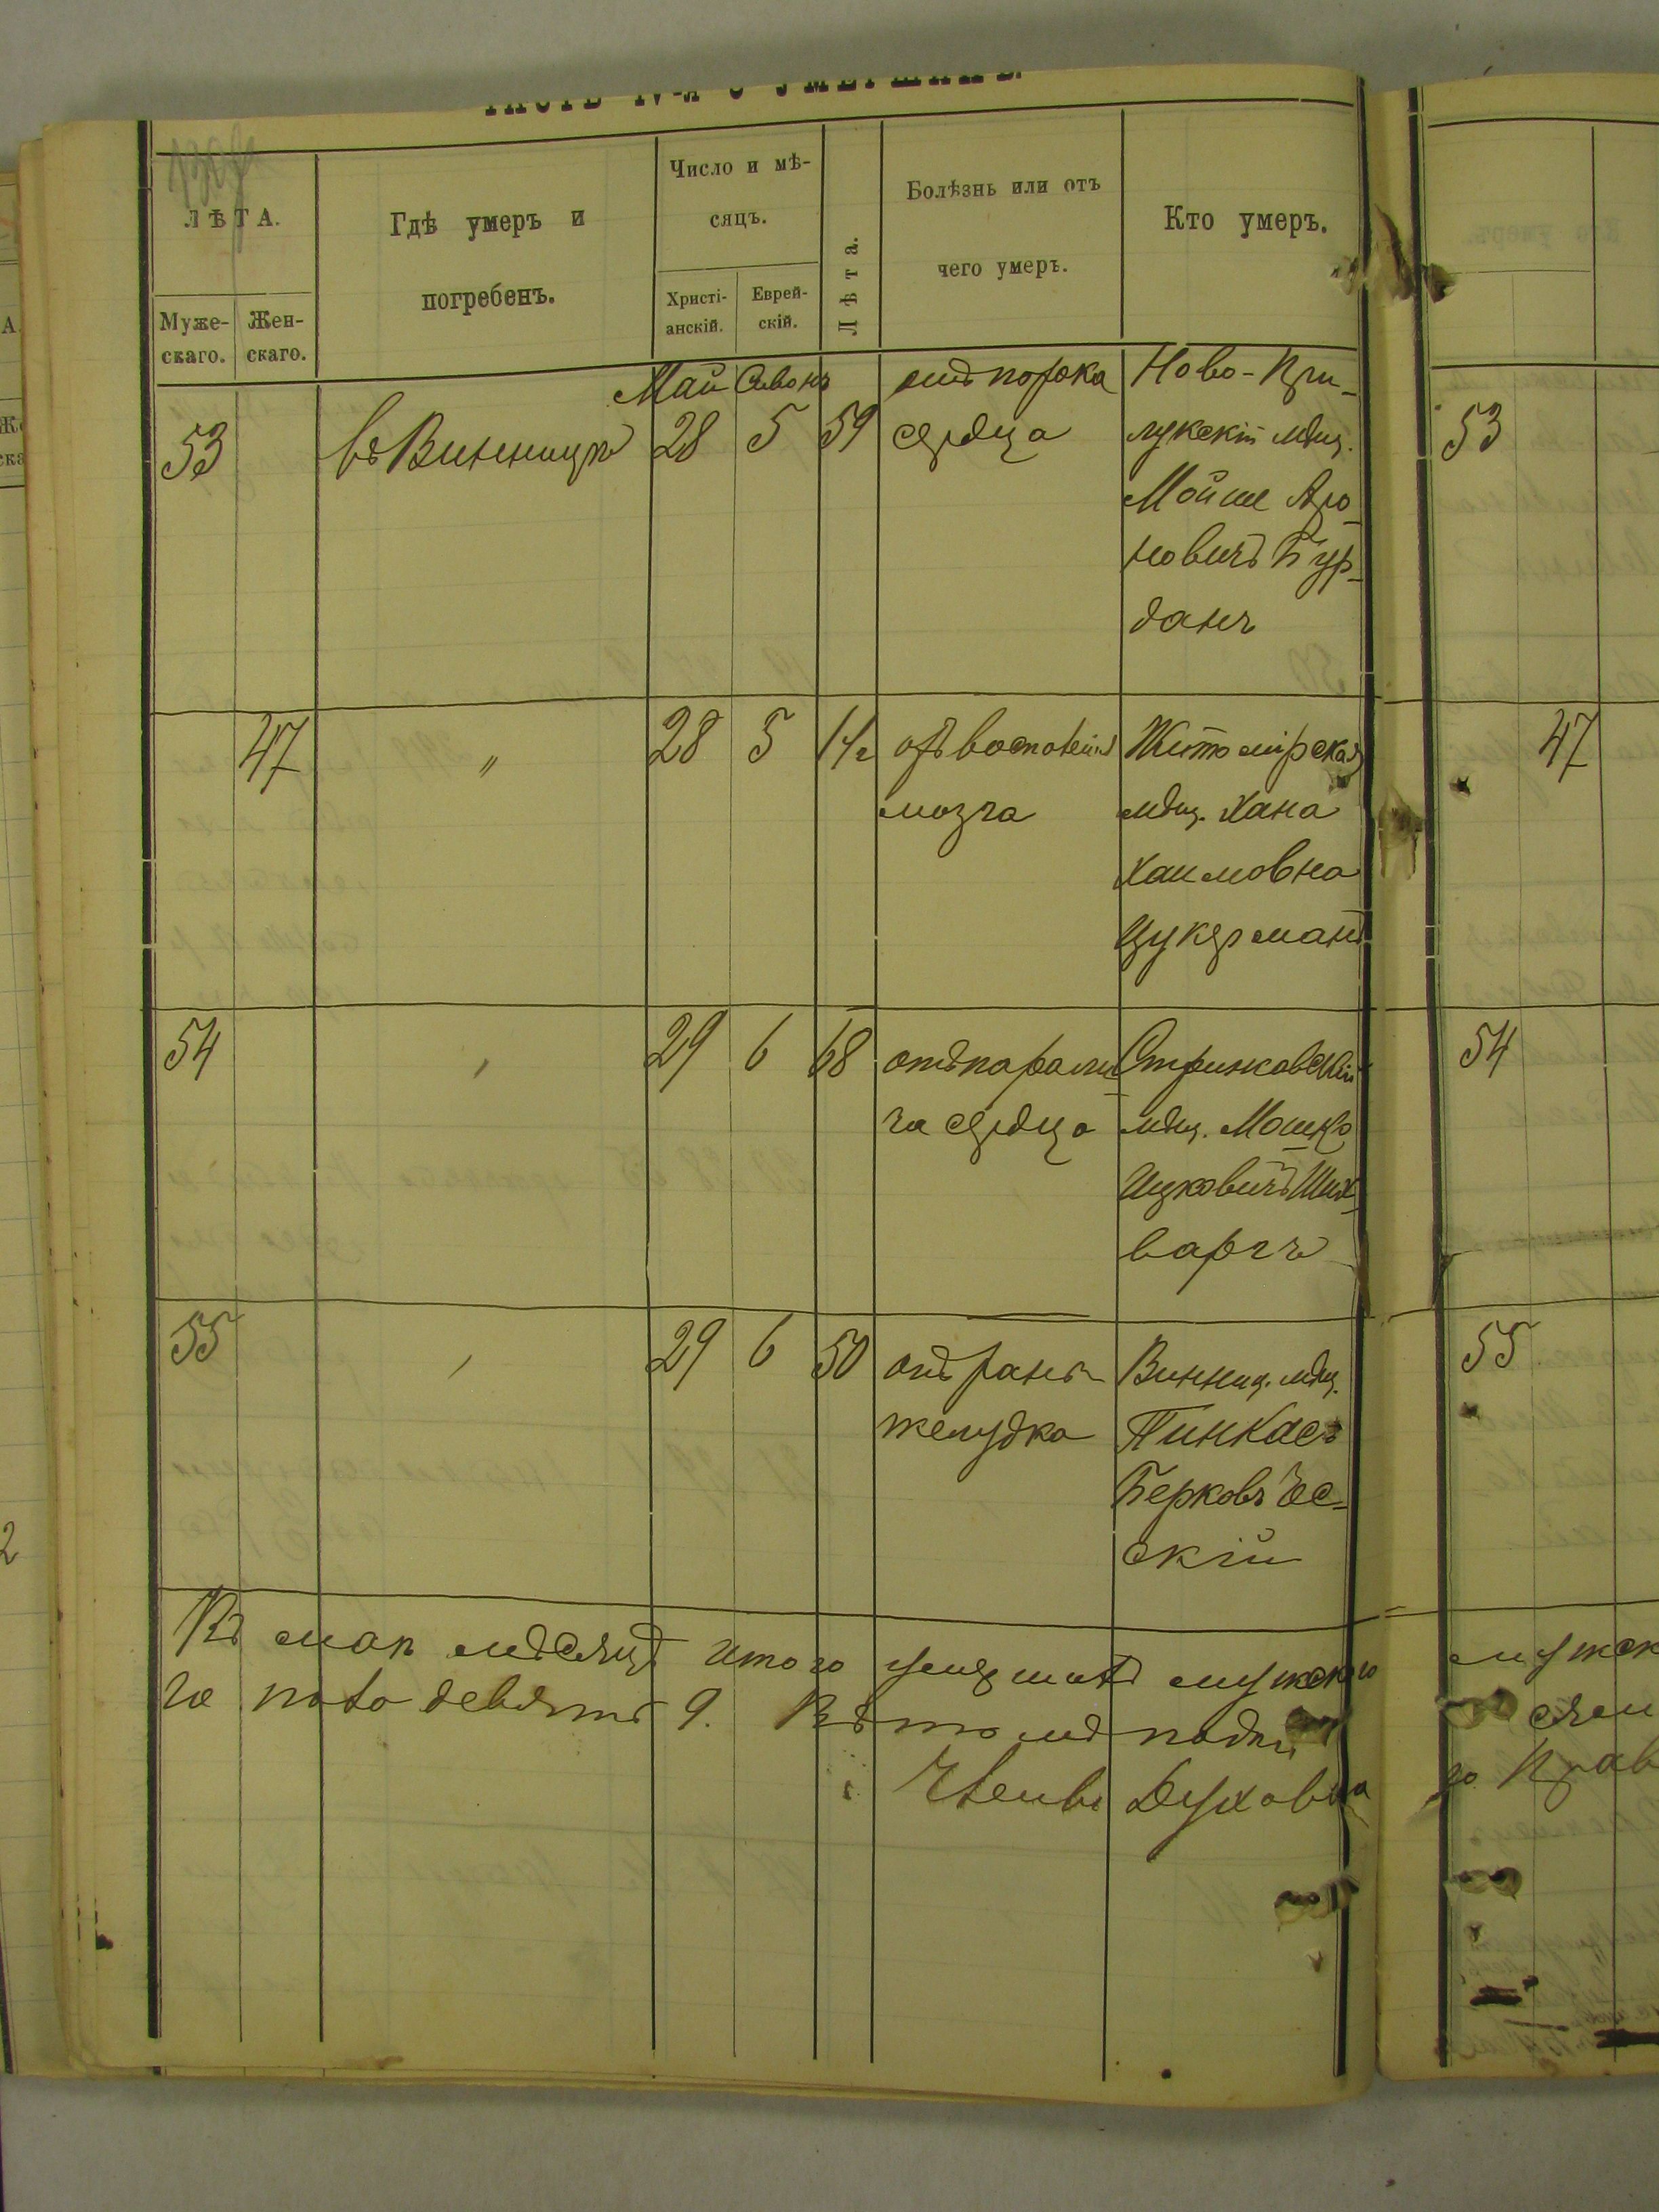 ЧАСТЬ IV-я О УМЕРШИХЪ.
ЛѢТА.
Муже-
скаго.
Жен-
скаго.
Гдѣ умеръ и
погребенъ.
Число и мѣ-
сяцъ.
Христі-
анскій.
Еврей-
скій.
Лѣта.
Болѣзнь или отъ
чего умеръ.
Кто умеръ.
Май Сивонъ
53 въ Винницѣ 28 5 59
отъ порока
сердца
Ново-При-
лукскій мѣщ.
Мойше Аро-
новичъ Бур-
данъ
47 " 28 5
отъ воспаленія
мозга
Житомірская
мѣщ. Хана
Хаимовна
Цукерманъ
54 29 6 68
отъ парали-
ча сердца
Стрижавскій
мѣщ. Мошко
Ицковичъ
варгъ
55 29 6 50
отъ ранъ
желудка
Винниц. мѣщ.
Пинкасъ
Берковъ
скій
Въ маѣ мѣсяцѣ итого умершихъ мужеска-
го пола девять 9. Въ томъ подпи
Члены Духовна
53
47
54
55
мужск
сѣем
го Прав